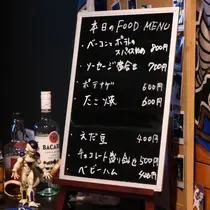 本日のFOOD MENU
・ベーコンとポテトの
スパイス炒め 800円
・ソーセージ盛合せ 700円
・ポテナゲ 600円
・たこ焼 600円
・えだ豆 400円
・チョコレート盛り合せ 500円
・ベビーハム 400円
BACARDI